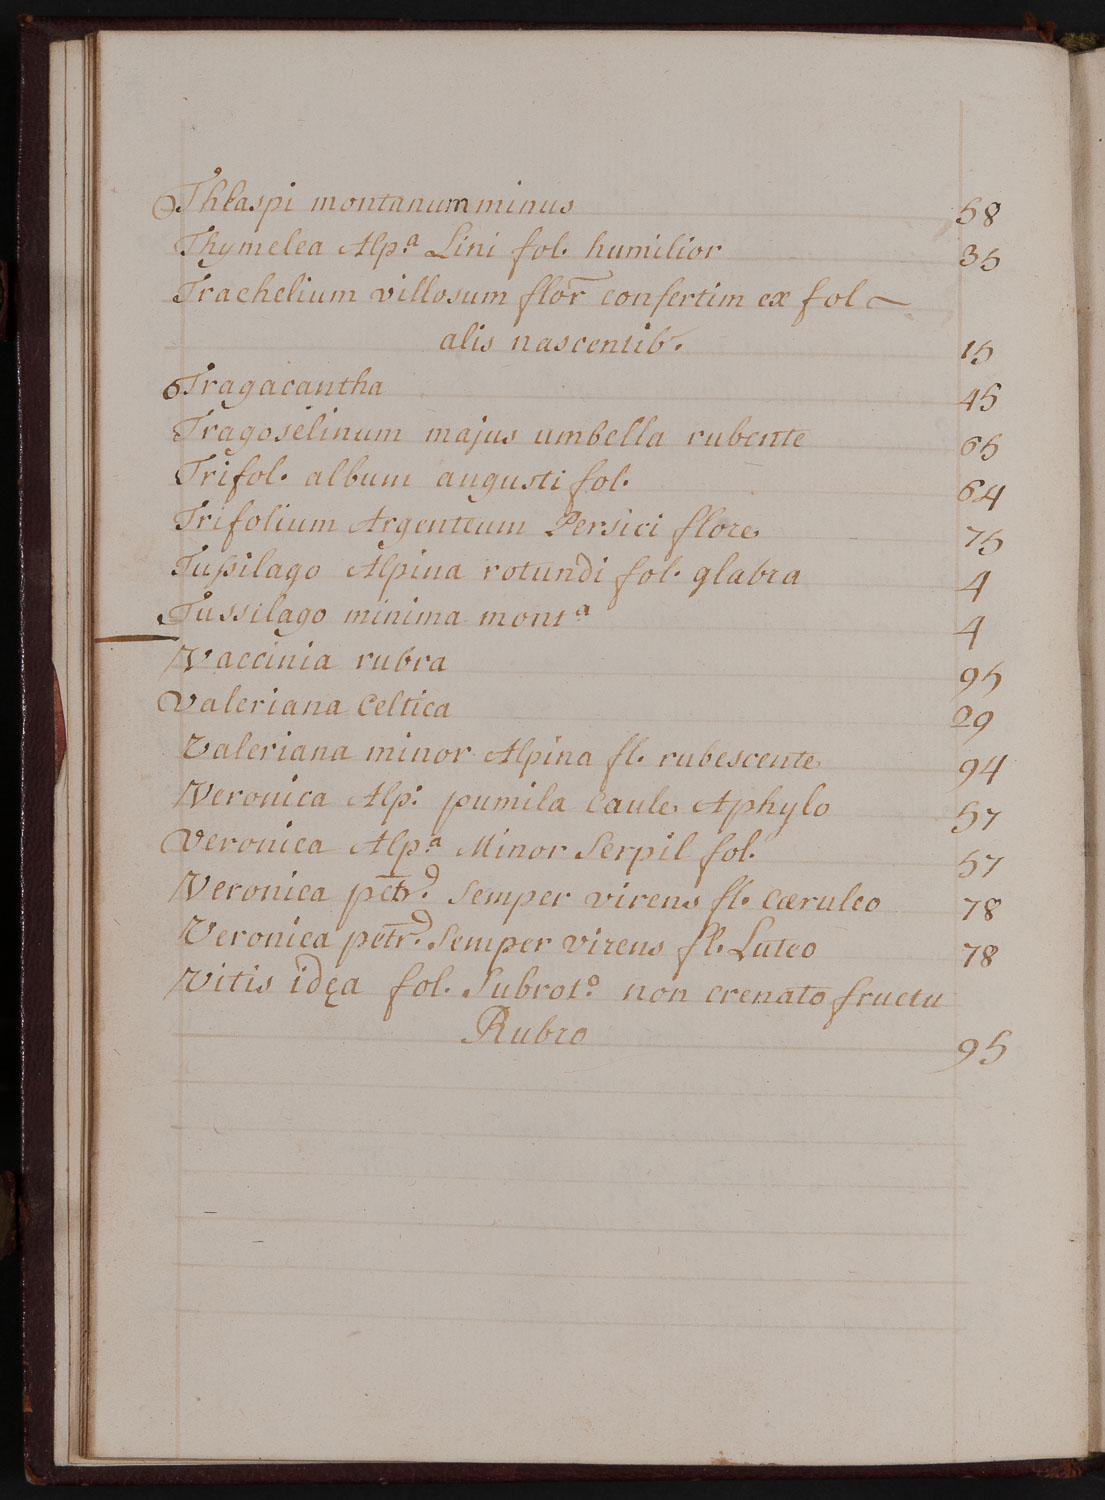 Thlaspi montanum minus 58
Thymelea Alp.ª Lini fol. humilior 35
Trachelium villosum flor̄ confertim ex fol
alis nascentib. 15
Tragacantha 45
Tragoselinum majus umbella rubente 65
Trifol. album augusti fol. 64
Trifolium Argenteum Persici flore 75
Tußilago Alpina rotundi fol. glabra 4
Tussilago minima montª 4
Vaccinia rubra 95
Valeriana Celtica 29
Valeriana minor Alpina fl. rubescente 94
Veronica Alp: pumila Caule Aphylo 57
Veronica Alp.ª Minor Serpil fol. 57
Veronica petr.d semper virens fl. Cæruleo 78
Veronica petr.d Semper virens fl. Luteo 78
Vitis idęa fol. Subrot.º non crenato fructu
Rubro 95